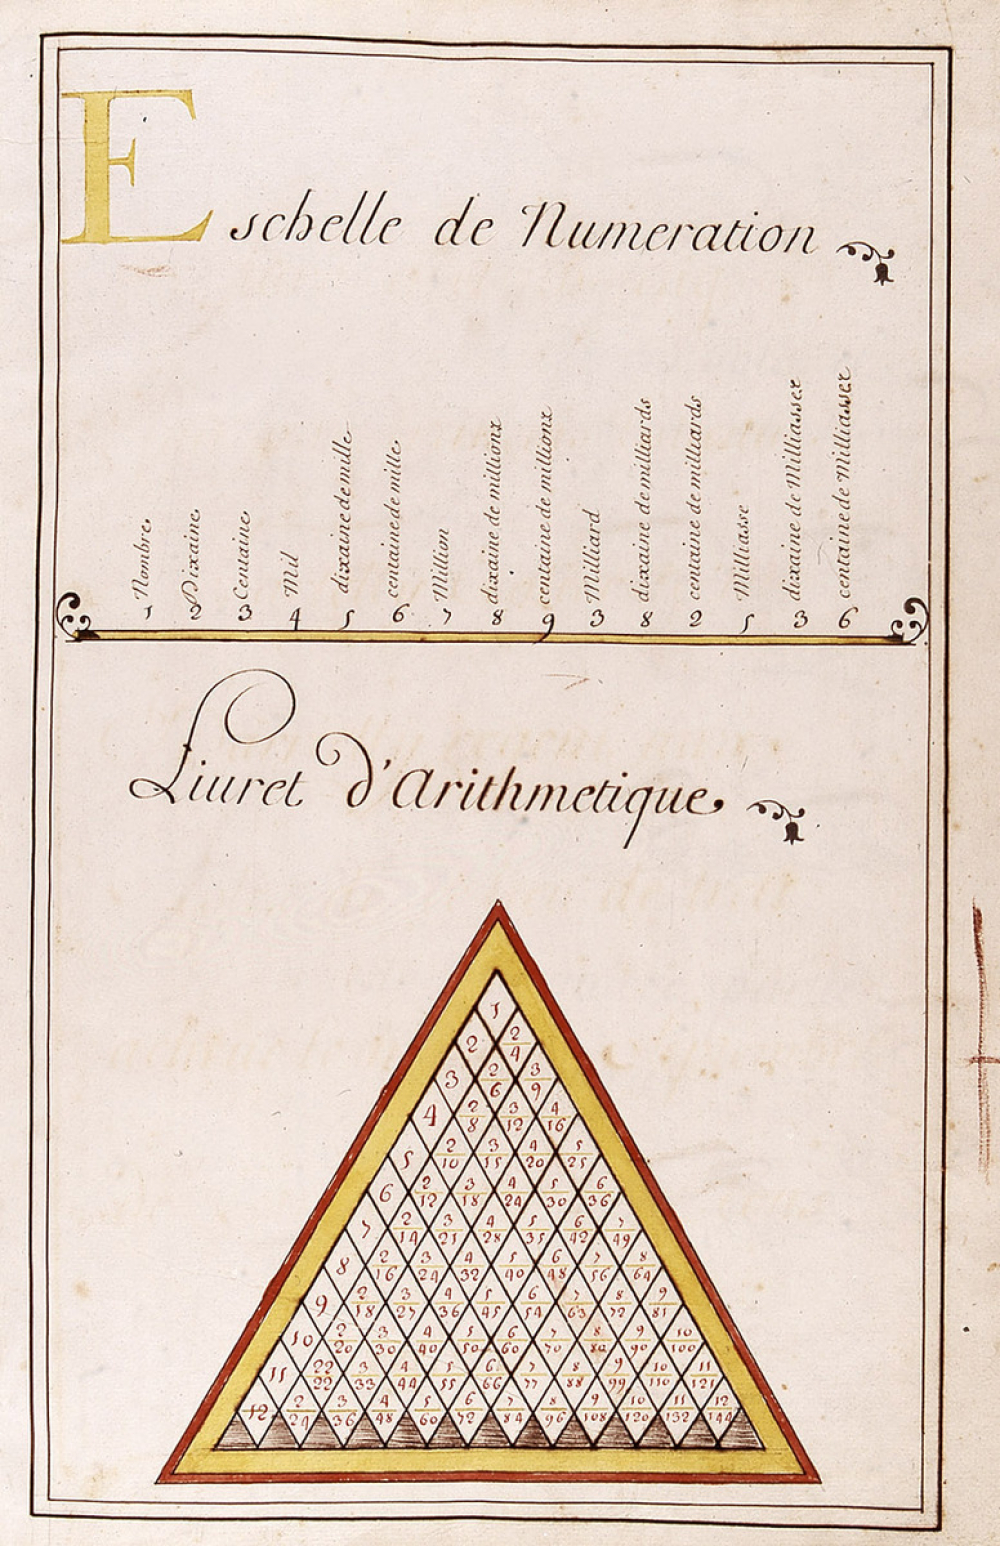 Eschelle de Numeration
Nombre
Dixaine
Centaine
Mil
dixaine de mille
centaine de mille
Million
dixaine de millions
centaine de millions
Milliard
dixaine de milliards
centaine de milliards
Milliasse
dixaine de Milliasses
centaine de Milliasses
1 2 3 4 5 6 7 8 9 3 8 2 5 3 6
Liuret d'Arithmetique
1
2 2/4
3 2/6 3/9
4 2/8 3/12 4/16
5 2/10 3/15 4/20 5/25
6 2/12 3/18 4/24 5/30 6/36
7 2/14 3/21 4/28 5/35 6/42 7/49
8 2/16 3/24 4/32 5/40 6/48 7/56 8/64
9 2/18 3/27 4/36 5/45 6/54 7/63 8/72 9/81
10 2/20 3/30 4/40 5/50 6/60 7/70 8/80 9/90 10/100
11 22/22 3/33 4/44 5/55 6/66 7/77 8/88 9/99 10/110 11/121
12 2/24 3/36 4/48 5/60 6/72 7/84 8/96 9/108 10/120 11/132 12/144